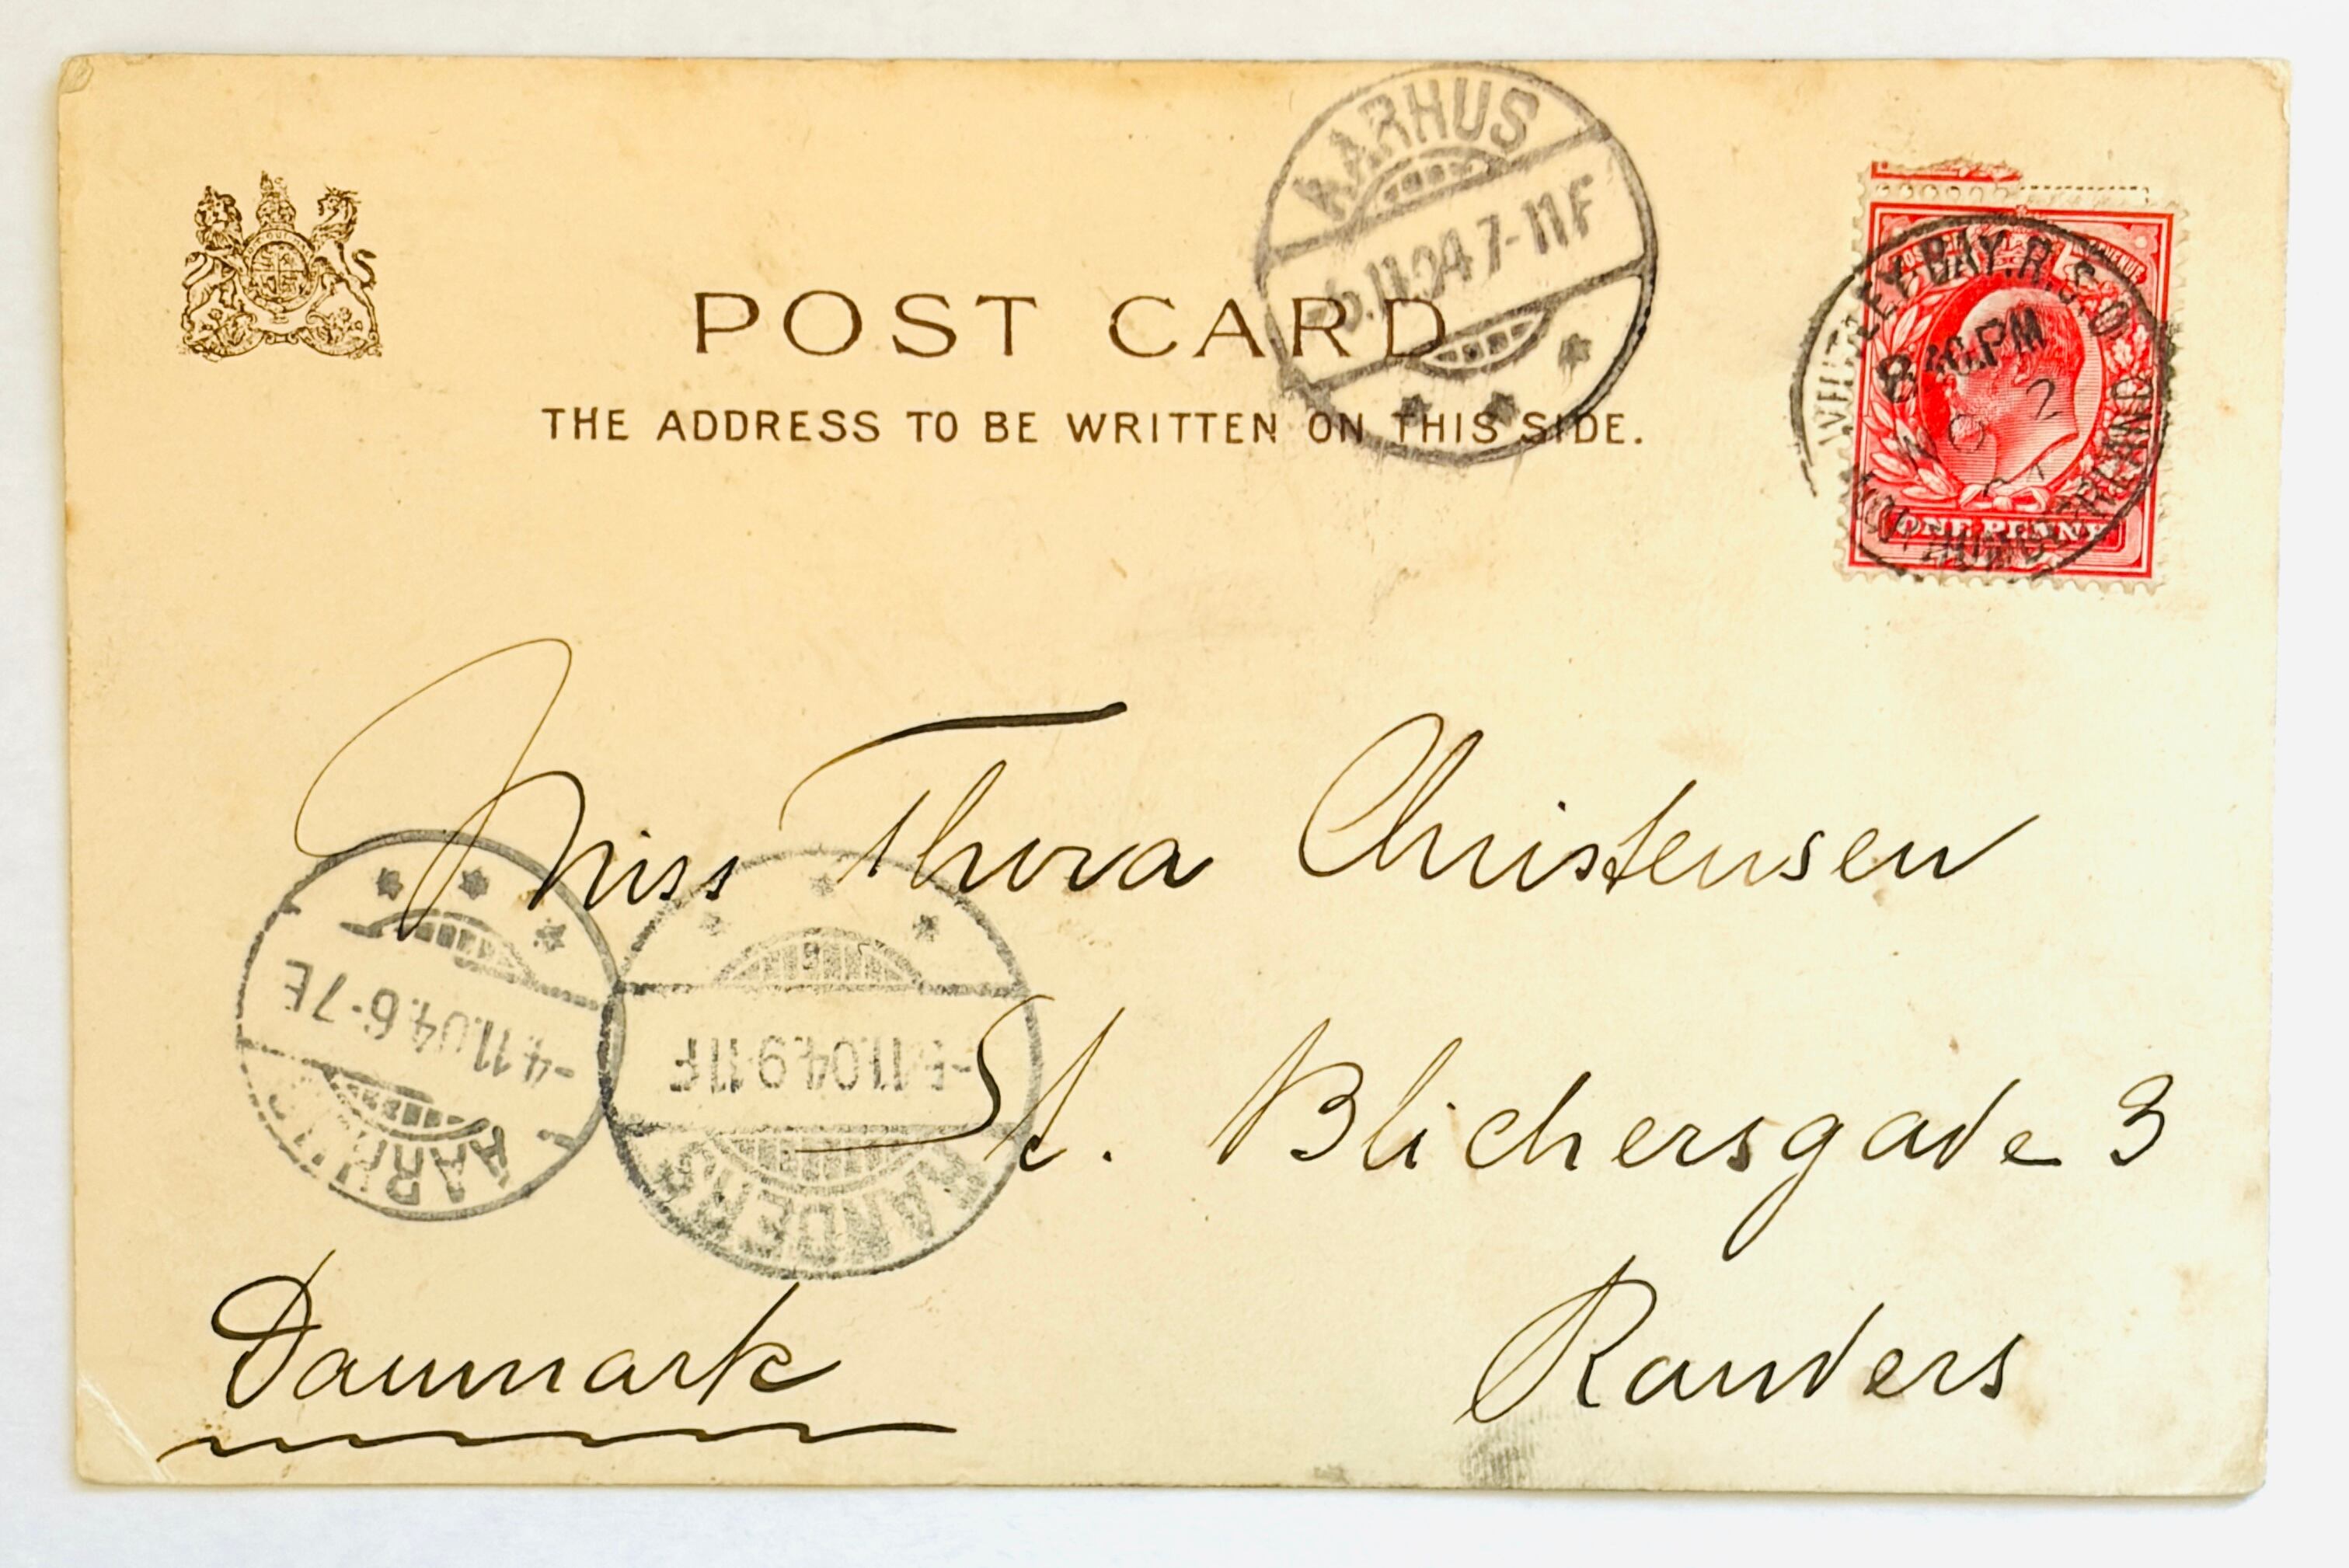 POST CARD
THE ADDRESS TO BE WRITTEN ON THIS SIDE.
AARHUS
6.11.04 7-11F
WHITLEY-BAY.R.S.O.
8 40.PM
NO 2
NORTHUMBERLAND
ONE PENNY
Miss Thora Christensen
St. Blichersgade 3
Randers
Danmark
AARHUS
-4.11.04.6-7E
RANDERS
11.04.9-11F